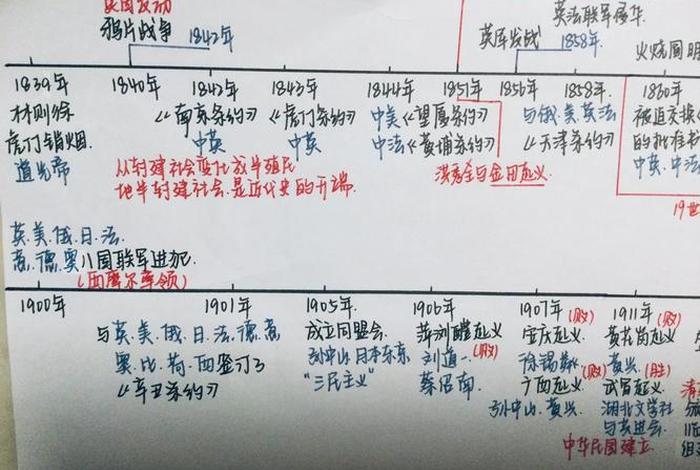 英国发动
鸦片战争
1842年
英军发战
1858年
英法联军侵华
火烧圆明
1839年
1840年
1842年
1843年
1844年
1851年
1856年
1858年
1860年
林则徐
虎门销烟
道光帝
《南京条约》
中英
《虎门条约》
中英
中美《望厦条约》
中法《黄埔条约》
洪秀全与金田起义
与俄.美.英法
《天津条约》
被迫交换《
的批准书
中英.中法
从封建社会变化成半殖民
地半封建社会.是近代史的开端.
19世
英.美.俄.日.法.
意.德.奥八国联军进犯
(西摩尔率领)
1900年
1901年
1905年
1906年
1907年(败)
1911年(败)
与英.美.俄.日.法.德.意
奥.比.荷.西签订了
《辛丑条约》
成立同盟会.
孙中山.日本东京
"三民主义"
萍浏醴起义
刘道一(败)
蔡绍南
安庆起义
徐锡麟(败)
广西起义
孙中山.黄兴
黄花岗起义
黄兴(胜)
武昌起义
湖北文学社
与共进会.
中华民国建立.